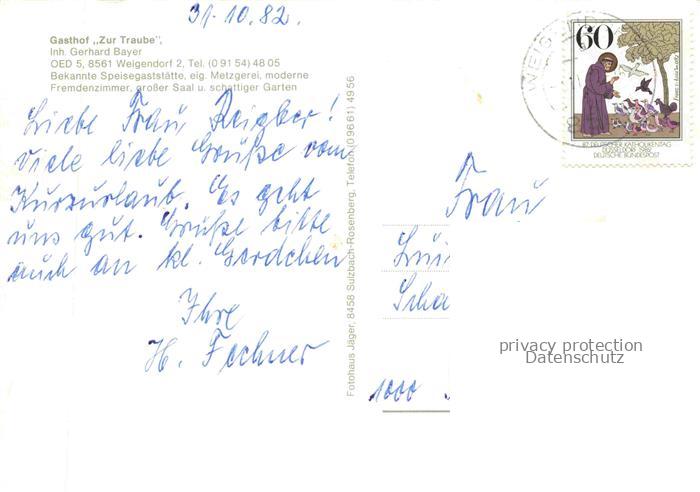 31.10.82.
Gasthof „Zur Traube",
Inh. Gerhard Bayer
OED 5, 8561 Weigendorf 2, Tel. (0 91 54) 48 05
Bekannte Speisegaststätte, eig. Metzgerei, moderne
Fremdenzimmer, großer Saal u. schattiger Garten
Liebe Frau Reigber!
Viele liebe Grüße vom
Kurzurlaub. Es geht
uns gut. Grüße bitte
auch an kl.
Ihre
H. Fechner
Fotohaus Jäger, 8458 Sulzbach-Rosenberg, Telefon (0 96 61) 49 56
60
87. DEUTSCHER KATHOLIKENTAG
DÜSSELDORF 1982
DEUTSCHE BUNDESPOST
Frau
1000
privacy protection
Datenschutz